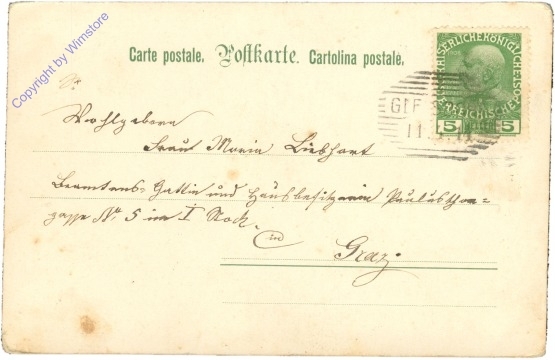 Copyright by Wimstore
Carte postale. Postkarte. Cartolina postale.
KAISERLICHE KÖNIGLICHE ÖSTERREICHISCHE
5 5
11
Wohlgeboren
Frau Maria Liebhart
Beamtens-Gattin und Hausbesitzerin Paulusthor=
gasse No 5 im I Stock.
in
Graz.